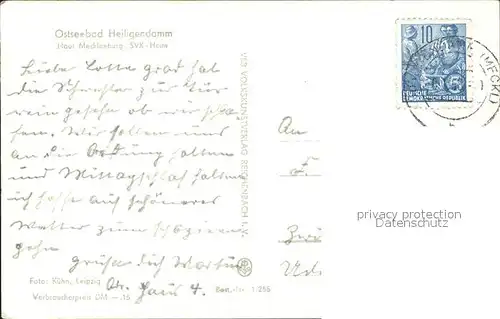 Ostseebad Heiligendamm
Haus Mecklenburg SVK-Heim
Liebe Lotte grad hat
die Schwester zur Tür
rein gesehn ob wir schla-
fen. Wir sollen uns
an die Ordnung halten
und Mittagschlaf halten
ich hoffe auf schöneres
Wetter zum spazieren
gehn
Grüße dich Martin
Haus 4.
Foto: Kühn, Leipzig
Verbraucherpreis DM -.15
Best.-Nr. 1/256
VEB VOLKSKUNSTVERLAG REICHENBACH I. V.
10
DEUTSCHE
DEMOKRATISCHE REPUBLIK
An
privacy protection
Datenschutz